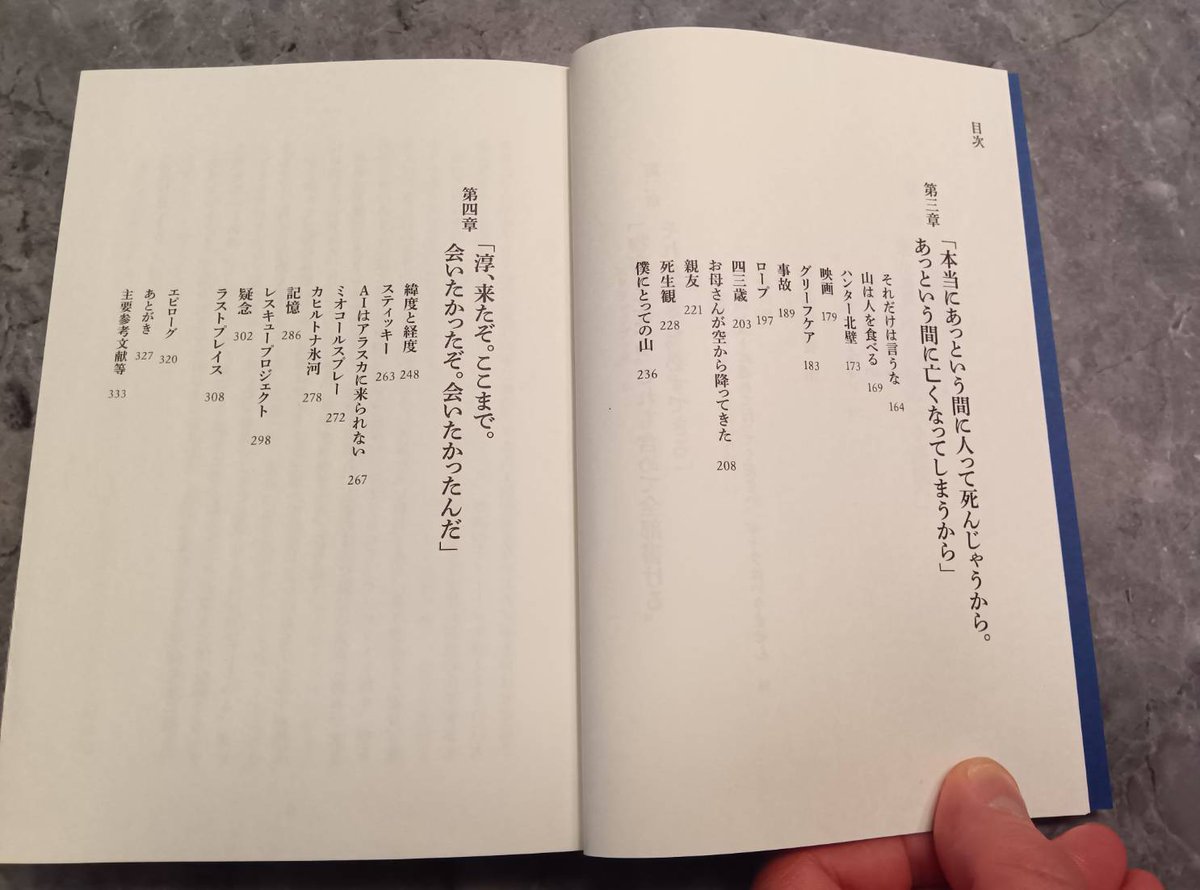 目次
第三章
「本当にあっという間に人って死んじゃうから。
あっという間に亡くなってしまうから」
それだけは言うな 164
山は人を食べる 169
ハンター北壁 173
映画 179
グリーフケア 183
事故 189
ロープ 197
四三歳 203
お母さんが空から降ってきた 208
親友 221
死生観 228
僕にとっての山 236
第四章
「淳、来たぞ。ここまで。
会いたかったぞ。会いたかったんだ」
緯度と経度 248
スティッキー 263
AIはアラスカに来られない 267
ミオコールスプレー 272
カヒルトナ氷河 278
記憶 286
レスキュープロジェクト 298
疑念 302
ラストプレイス 308
エピローグ 320
あとがき 327
主要参考文献等 333